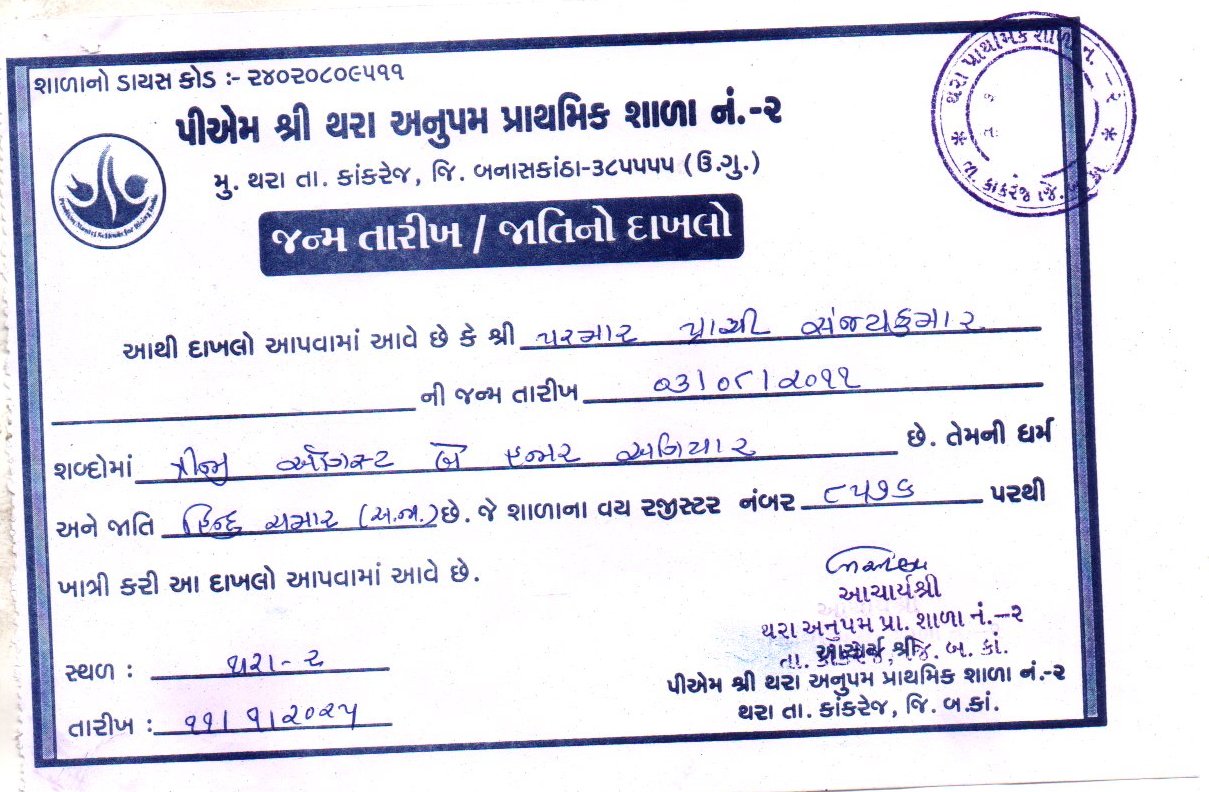 શાળાનો ડાયસ કોડ :- ૨૪૦૨૦૮૦૯૫૧૧
પીએમ શ્રી થરા અનુપમ પ્રાથમિક શાળા નં.-૨
મુ. થરા તા. કાંકરેજ, જિ. બનાસકાંઠા-૩૮૫૫૫૫ (ઉ.ગુ.)
થરા પ્રાથમિક શાળા નં. -૨
તા. કાંકરેજ જિ.
જન્મ તારીખ / જાતિનો દાખલો
આથી દાખલો આપવામાં આવે છે કે શ્રી પરમાર પ્રાચી સંજયકુમાર
ની જન્મ તારીખ ૦૩/૦૮/૨૦૧૧
શબ્દોમાં ત્રીજી ઓગસ્ટ બે હજાર અગિયાર છે. તેમની ધર્મ
અને જાતિ હિન્દુ ચમાર (અ.જા.) છે. જે શાળાના વય રજીસ્ટર નંબર ૮૫૭૬ પરથી
ખાત્રી કરી આ દાખલો આપવામાં આવે છે.
આચાર્યશ્રી
થરા અનુપમ પ્રા. શાળા નં.-૨
તા. કાંકરેજ, જિ. બ. કાં.
આચાર્ય શ્રી
સ્થળ : થરા-૨
પીએમ શ્રી થરા અનુપમ પ્રાથમિક શાળા નં.-૨
તારીખ : ૧૧/૧/૨૦૨૫
થરા તા. કાંકરેજ, જિ. બ.કાં.